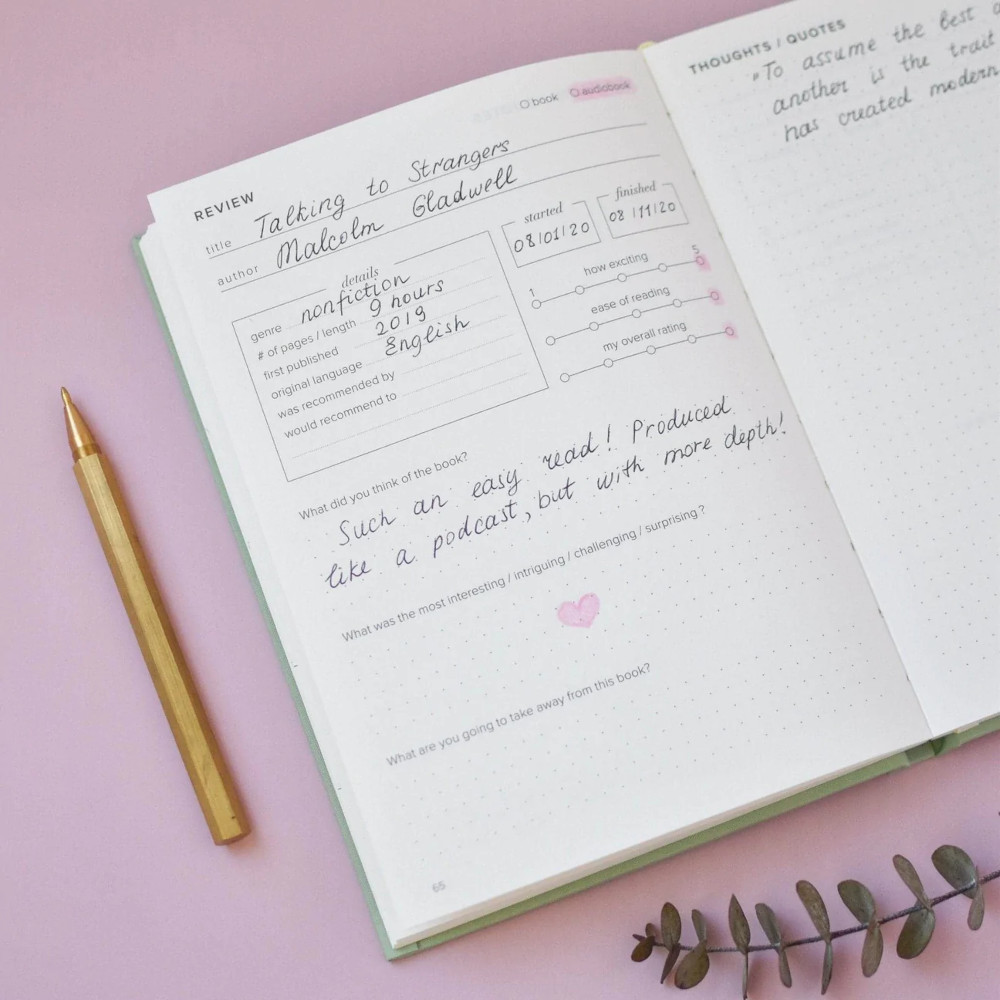 O book O audiobook
REVIEW
title Talking to Strangers
author Malcolm Gladwell
details
genre nonfiction
# of pages / length 9 hours
first published 2019
original language English
was recommended by
would recommend to
started
08/01/20
finished
08/11/20
how exciting
1 5
ease of reading
my overall rating
What did you think of the book?
Such an easy read! Produced
like a podcast, but with more depth!
What was the most interesting / intriguing / challenging / surprising?
What are you going to take away from this book?
65
THOUGHTS / QUOTES
"To assume the best
another is the trait
has created modern